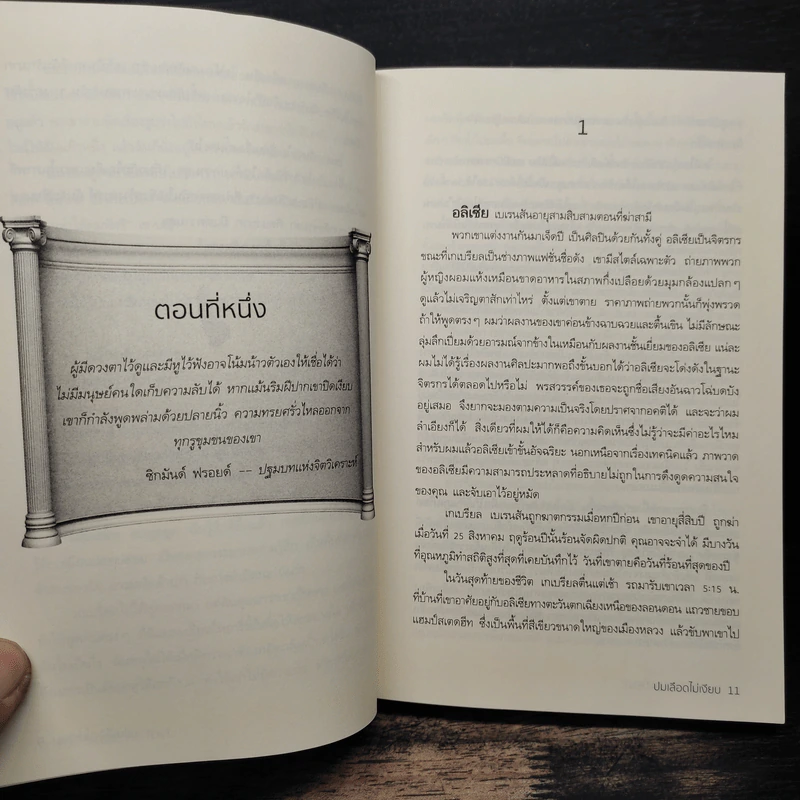 ตอนที่หนึ่ง
ผู้มีดวงตาไว้ดูและมีหูไว้ฟังอาจโน้มน้าวตัวเองให้เชื่อได้ว่า
ไม่มีมนุษย์คนใดเก็บความลับได้ หากแม้นริมฝีปากเขาปิดเงียบ
เขาก็กำลังพูดพล่ามด้วยปลายนิ้ว ความทรยศรั่วไหลออกจาก
ทุกรูขุมขนของเขา
ซิกมันด์ ฟรอยด์ -- ปฐมบทแห่งจิตวิเคราะห์
1
อลิเซีย เบเรนสันอายุสามสิบสามตอนที่ฆ่าสามี
พวกเขาแต่งงานกันมาเจ็ดปี เป็นศิลปินด้วยกันทั้งคู่ อลิเซียเป็นจิตรกร
ขณะที่เกเบรียลเป็นช่างภาพแฟชั่นชื่อดัง เขามีสไตล์เฉพาะตัว ถ่ายภาพพวก
ผู้หญิงผอมแห้งเหมือนขาดอาหารในสภาพกึ่งเปลือยด้วยมุมกล้องแปลก ๆ
ดูแล้วไม่เจริญตาสักเท่าไหร่ ตั้งแต่เขาตาย ราคาภาพถ่ายพวกนั้นก็พุ่งพรวด
ถ้าให้พูดตรงๆ ผมว่าผลงานของเขาค่อนข้างฉาบฉวยและตื้นเขิน ไม่มีลักษณะ
ลุ่มลึกเปี่ยมด้วยอารมณ์จากข้างในเหมือนกับผลงานชั้นเยี่ยมของอลิเซีย แน่ละ
ผมไม่ได้รู้เรื่องผลงานศิลปะมากพอถึงขั้นบอกได้ว่าอลิเซียจะโด่งดังในฐานะ
จิตรกรได้ตลอดไปหรือไม่ พรสวรรค์ของเธอจะถูกชื่อเสียงอันฉาวโฉ่บดบัง
อยู่เสมอ จึงยากจะมองตามความเป็นจริงโดยปราศจากอคติได้ และจะว่าผม
ลำเอียงก็ได้ สิ่งเดียวที่ผมให้ได้ก็คือความคิดเห็นซึ่งไม่รู้ว่าจะมีค่าอะไรไหม
สำหรับผมแล้วอลิเซียเข้าขั้นอัจฉริยะ นอกเหนือจากเรื่องเทคนิคแล้ว ภาพวาด
ของอลิเซียมีความสามารถประหลาดที่อธิบายไม่ถูกในการดึงดูดความสนใจ
ของคุณ และจับเอาไว้อยู่หมัด
เกเบรียล เบเรนสันถูกฆาตกรรมเมื่อหกปีก่อน เขาอายุสี่สิบปี ถูกฆ่า
เมื่อวันที่ 25 สิงหาคม ฤดูร้อนปีนั้นร้อนจัดผิดปกติ คุณอาจจะจำได้ มีบางวัน
ที่อุณหภูมิทำสถิติสูงที่สุดที่เคยบันทึกไว้ วันที่เขาตายคือวันที่ร้อนที่สุดของปี
ในวันสุดท้ายของชีวิต เกเบรียลตื่นแต่เช้า รถมารับเขาเวลา 5:15 น.
ที่บ้านที่เขาอาศัยอยู่กับอลิเซียทางตะวันตกเฉียงเหนือของลอนดอน แถวชายขอบ
แฮมป์สเตดฮีท ซึ่งเป็นพื้นที่สีเขียวขนาดใหญ่ของเมืองหลวง แล้วขับพาเขาไป
ปมเลือดไม่เงียบ 11